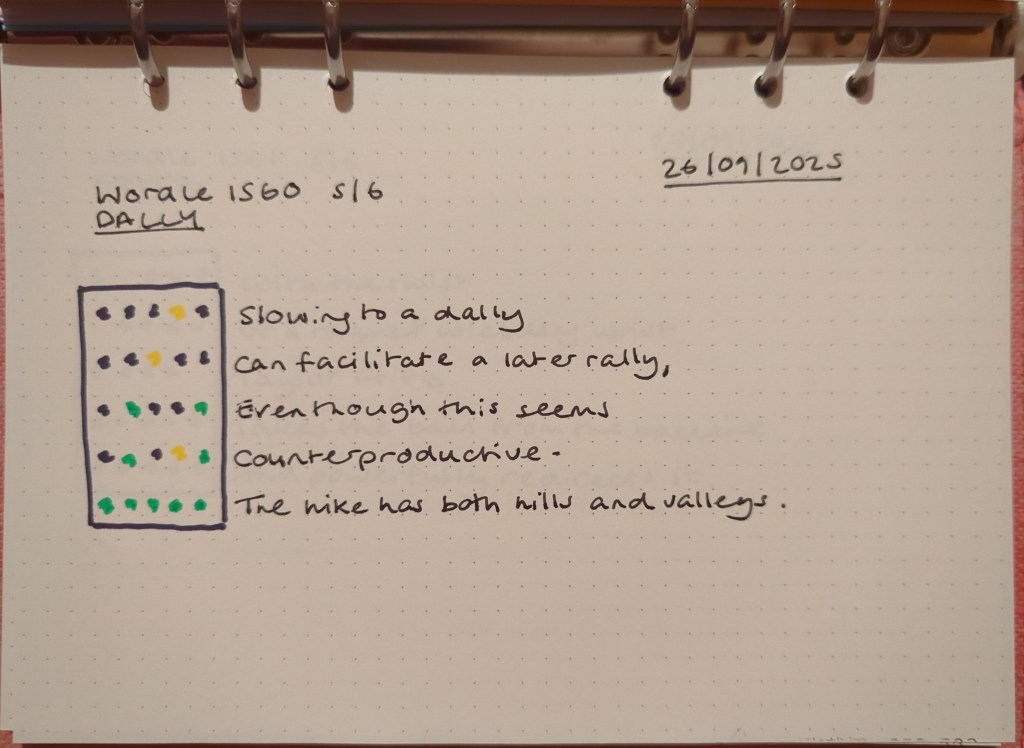 26/09/2025
Wordle 1560 5/6
DALLY
Slowing to a dally
can facilitate a later rally,
Even though this seems
counterproductive.
The hike has both hills and valleys.